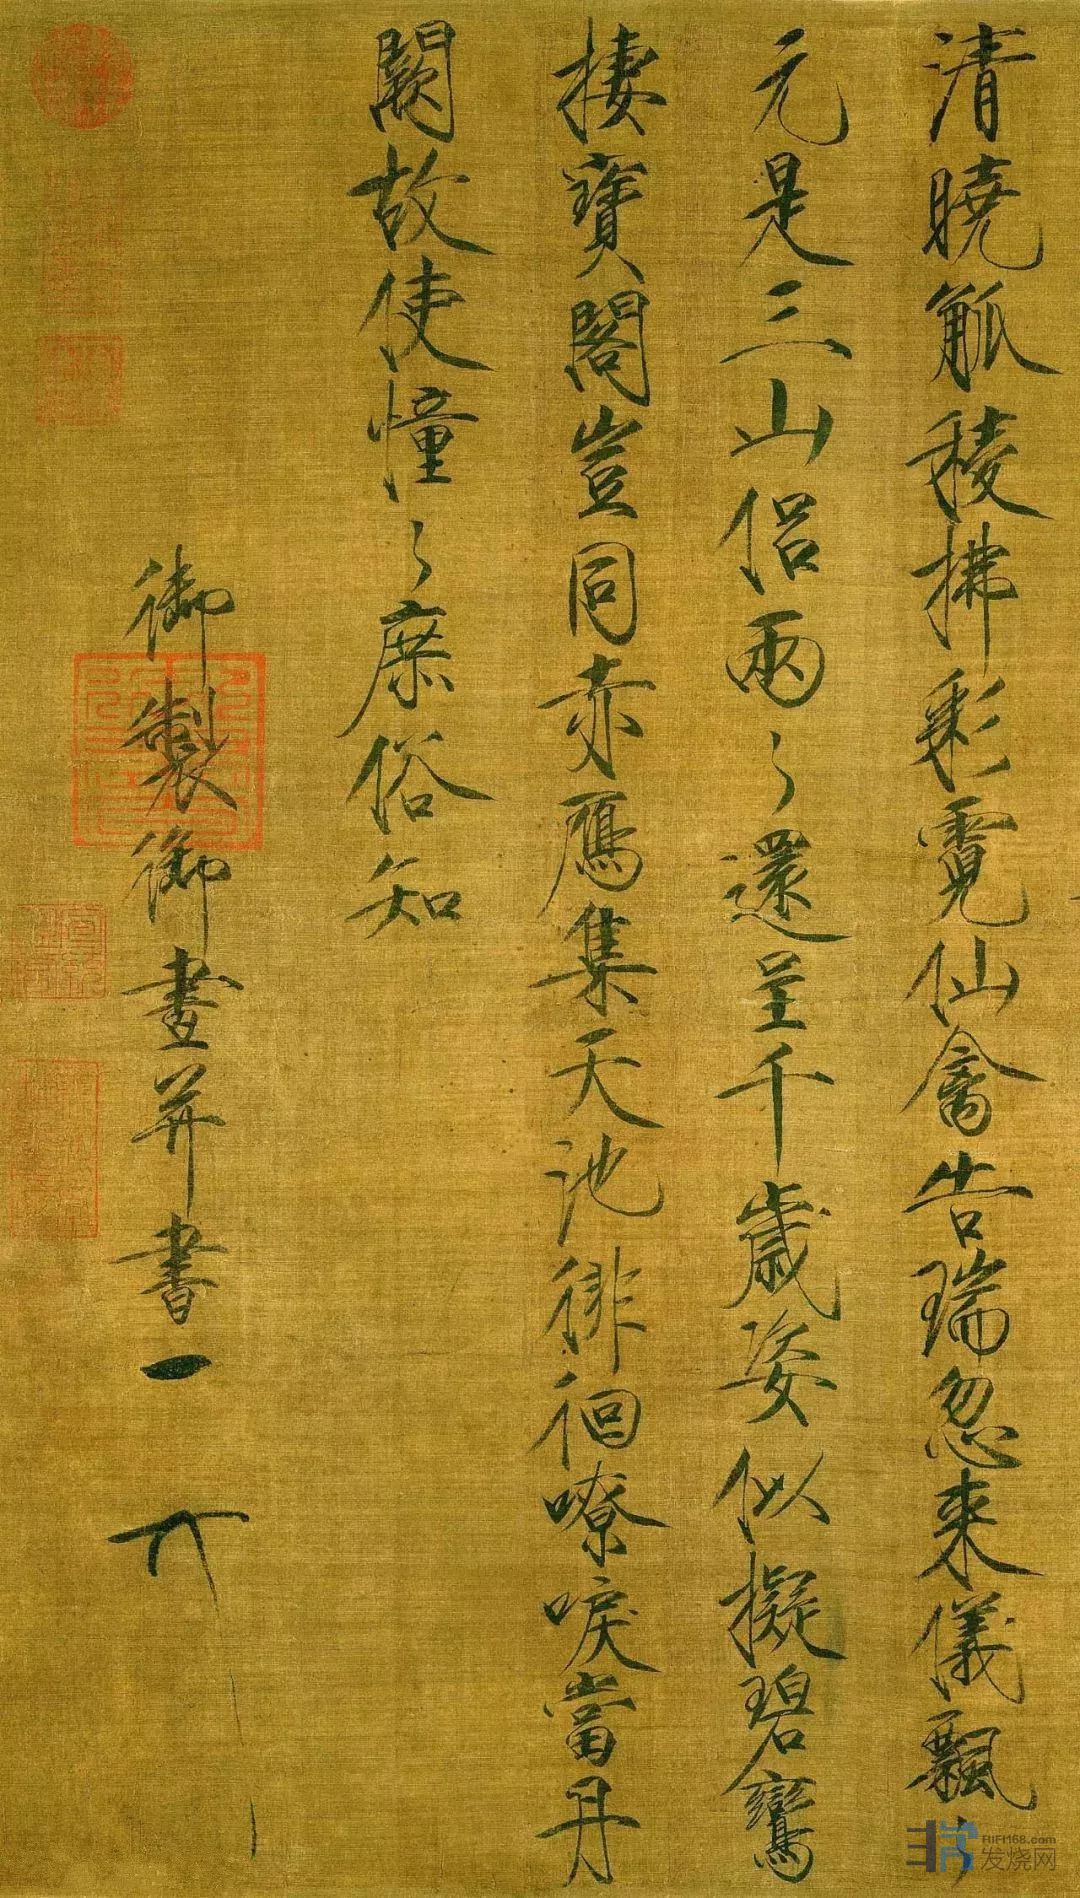 清曉觚稜拂彩霓仙禽告瑞忽来儀飄々
元是三山侣兩々還呈千歲姿似擬碧鸞
棲寶閣豈同赤鴈集天池徘徊嘹唳當丹
闕故使憧々庶俗知
御製御畫并書
HIFI168.com
发烧网